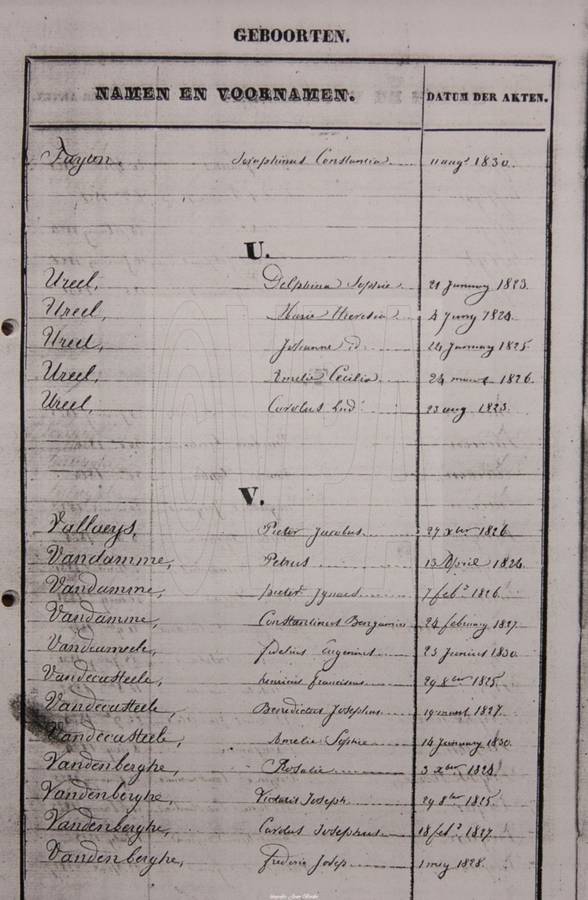 GEBOORTEN.
NAMEN EN VOORNAMEN. DATUM DER AKTEN.
Seraphinus Constantia 11 augt 1830.
U.
Ureel, Delphina Sophie 21 January 1823.
Ureel, Marie Theresia 4 Juny 1824.
Ureel, Johanne d: 24 January 1825
Ureel, Amelie Cecilia 24 maert 1826.
Ureel, Carolus Lud: 23 aug 1823.
V.
Vallaeys, Pieter Jacobus 27 xber 1826
Vandamme, Petrus 13 April 1824
Vandamme, pieter Ignaes 7 feb: 1826.
Vandamme, Constantinus Benjamin 24 february 1827
fidelius Eugenius 25 Junius 1830.
Vandecasteele, henricus franciscus 29 8ber 1825.
Vandecasteele, Benedictus Josephus 19 maert 1827.
Vandecasteele, Amelie Sophie 14 January 1830.
Vandenberghe, Rosalie 3 xber 1824
Vandenberghe, Joseph 29 8ber 1825.
Vandenberghe, Carolus Josephus 18 feb: 1827
Vandenberghe, frederic Josep 1 mey 1828.